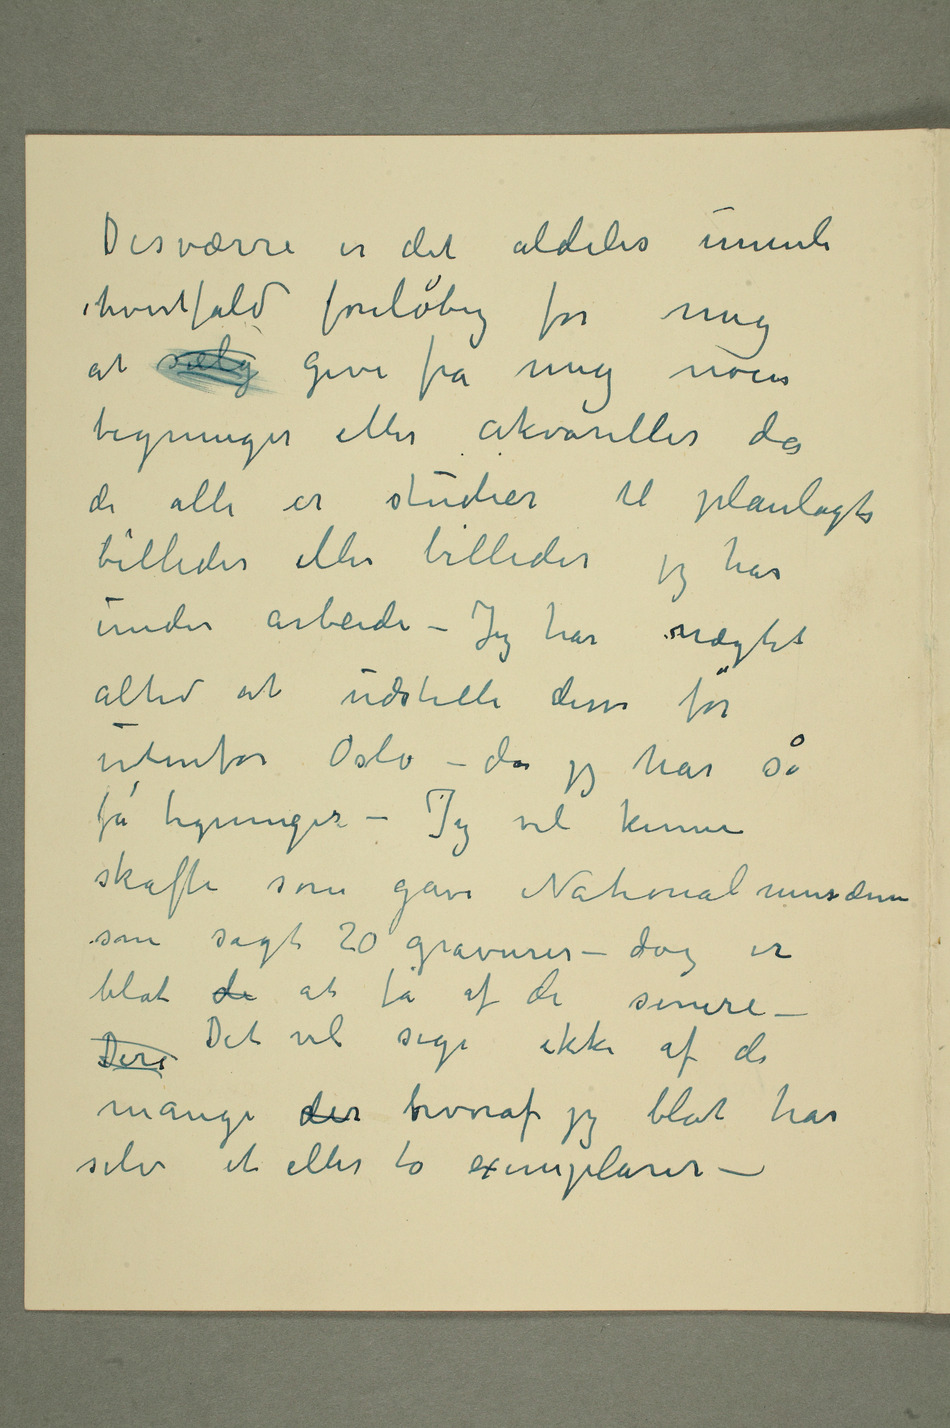 Desværre er det aldeles umuli
ihvertfald foreløbig for mig
at sælg give fra mig noen
tegninger eller akvareller da
de alle er studier til planlagte
billeder eller billeder jeg har
under arbeide – Jeg har nægtet
altid at udstille dem før
utenfor Oslo – da jeg har så
få tegninger – Jeg vil kunne
skaffe som gave Nationalmusæum
som sagt 20 gravurer – dog er
blat de at få af de senere –
Dere Det vil sige ikke af de
mange der hvoraf jeg blot har
selv et eller to exemplarer –